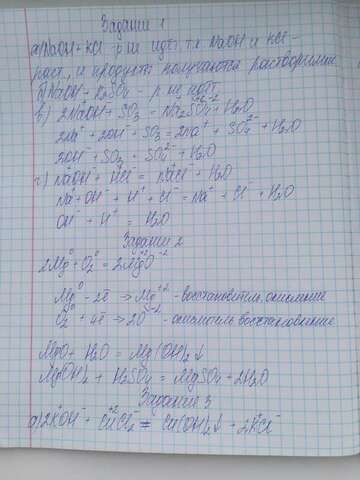 Задание 1
а) NaOH + KCl р. не идёт, т.к. NaOH и KCl -
раст., и продукты получаются растворимые
б) NaOH + K₂SO₄ - р. не идёт
в) 2NaOH + SO₃ = Na₂SO₄ + H₂O
2Na⁺ + 2OH⁻ + SO₃ = 2Na⁺ + SO₄²⁻ + H₂O
2OH⁻ + SO₃ = SO₄²⁻ + H₂O
г) NaOH + HCl = NaCl + H₂O
Na⁺ + OH⁻ + H⁺ + Cl⁻ = Na⁺ + Cl⁻ + H₂O
OH⁻ + H⁺ = H₂O
Задание 2
2Mg⁰ + O₂⁰ = 2Mg⁺²O⁻²
Mg⁰ - 2ē → Mg⁺² - восстановитель, окисление
O₂⁰ + 4ē → 2O⁻² - окислитель, восстановление
MgO + H₂O = Mg(OH)₂↓
Mg(OH)₂ + H₂SO₄ = MgSO₄ + 2H₂O
Задание 3
а) 2K⁺OH⁻ + Cu⁺²Cl₂⁻ = Cu(OH)₂↓ + 2K⁺Cl⁻